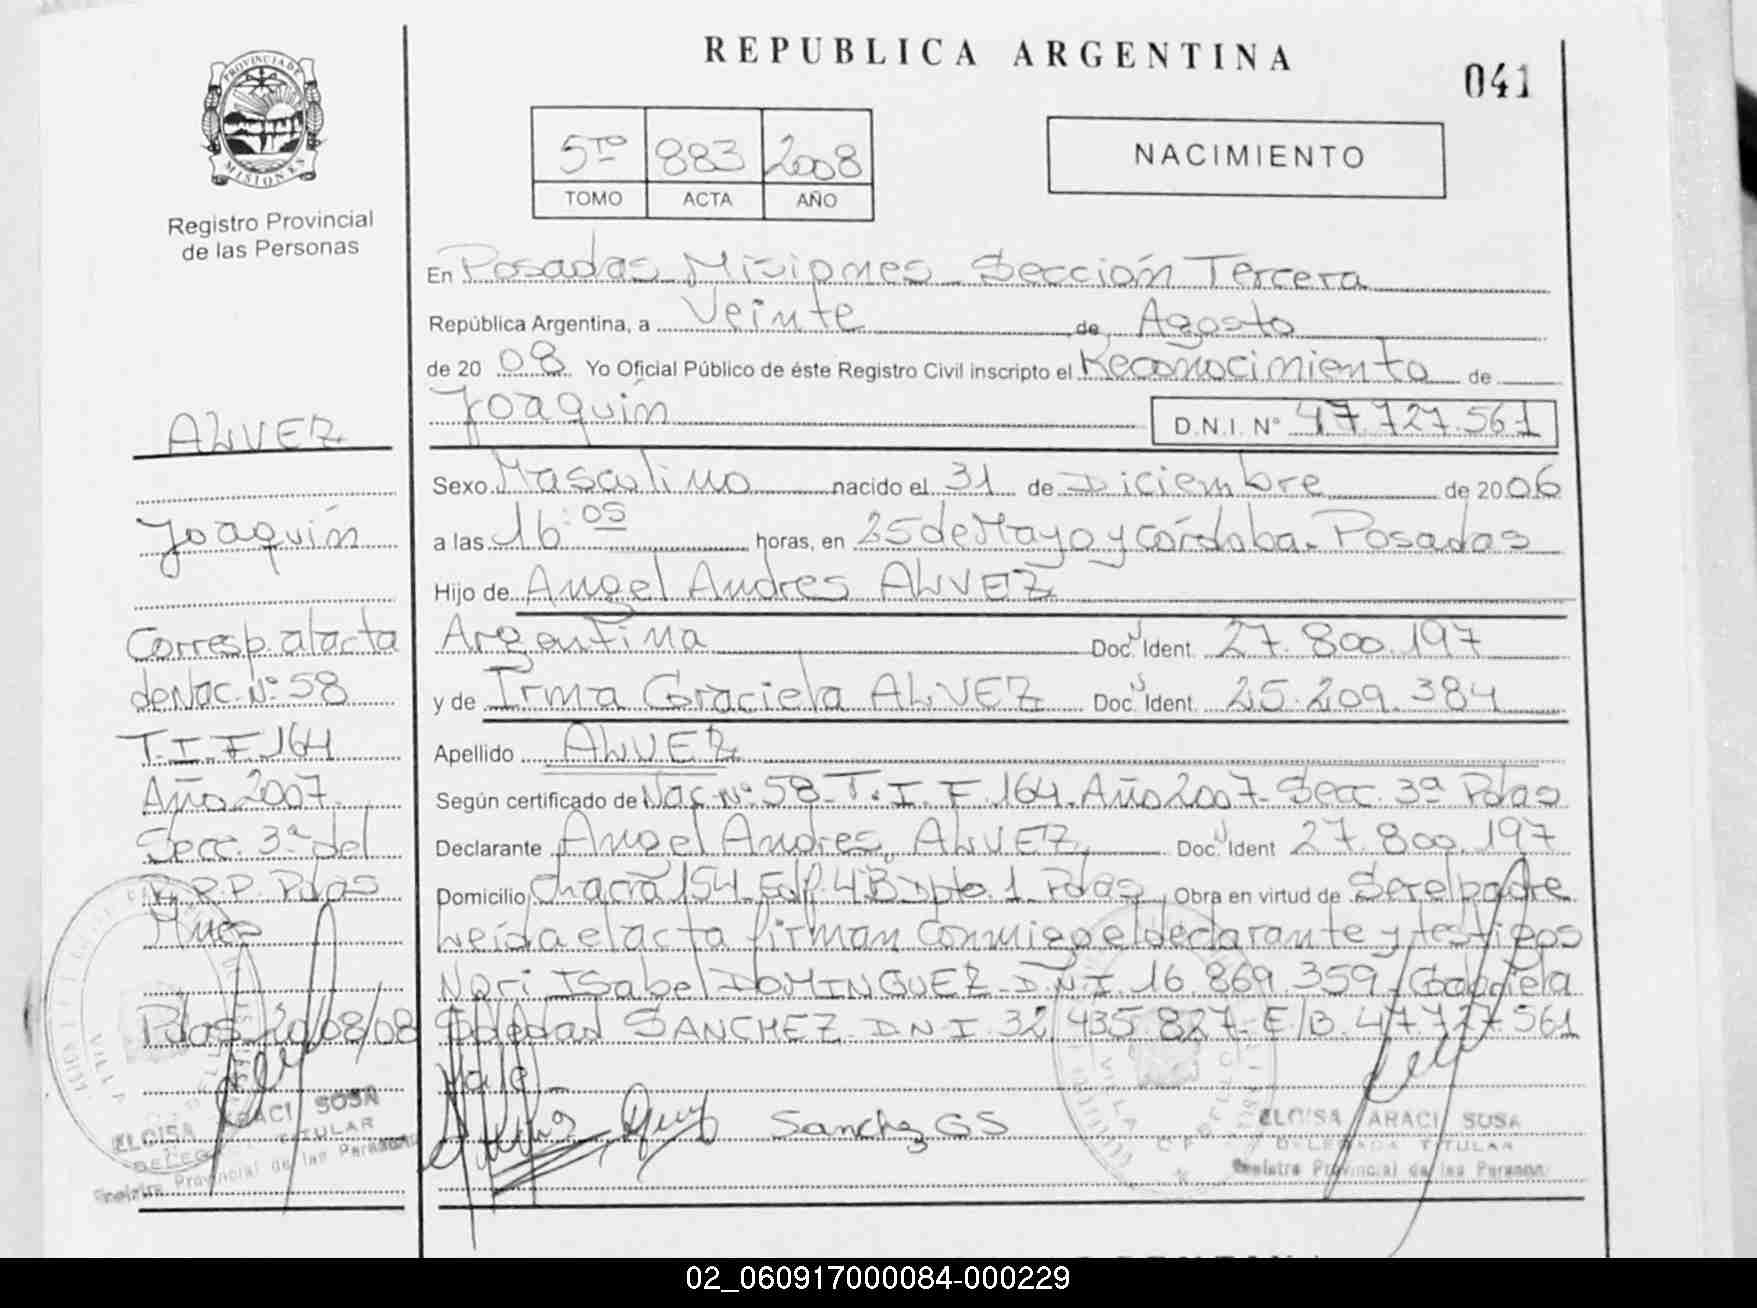 REPUBLICA ARGENTINA
041
PROVINCIA DE MISIONES
Registro Provincial
de las Personas
5TO 883 2008
TOMO ACTA AÑO
NACIMIENTO
En Posadas Misiones Sección Tercera
República Argentina, a Veinte de Agosto
de 20 08 Yo Oficial Público de éste Registro Civil inscripto el Reconocimiento de
Joaquín D.N.I. N° 47.727.561
Sexo Masculino nacido el 31 de Diciembre de 2006
a las 16:05 horas, en 25 de Mayo y Córdoba - Posadas
Hijo de Angel Andres ALVEZ
Argentina Doc. Ident. 27.800.197
y de Irma Graciela ALVEZ Doc. Ident. 25.209.384
Apellido ALVEZ
Según certificado de Nac. Nº 58 - T. I. F. 164. Año 2007 - Secc. 3ª Pdas
Declarante Angel Andres ALVEZ Doc. Ident 27.800.197
Domicilio Chacra 154 Edif. 4B Dpto. 1 Pdas Obra en virtud de Ser el padre
Leída el acta firman conmigo el declarante y testigos
Nori Isabel DOMINGUEZ D.N.I. 16.869.359 / Gabriela
Soledad SANCHEZ D.N.I. 32.435.827 - E/B. 47727561
Vale
Sanchez GS
ELOISA ARACI SOSA
DELEGADA TITULAR
Registro Provincial de las Personas
ALVEZ
Joaquín
Corresp. al acta
de Nac. Nº 58
T. I. F. 164
Año 2007
Secc. 3ª del
R.P.P. Pdas
Mnes
Pdas 20/08/08
ELOISA ARACI SOSA
DELEGADA TITULAR
Registro Provincial de las Personas
02_060917000084-000229